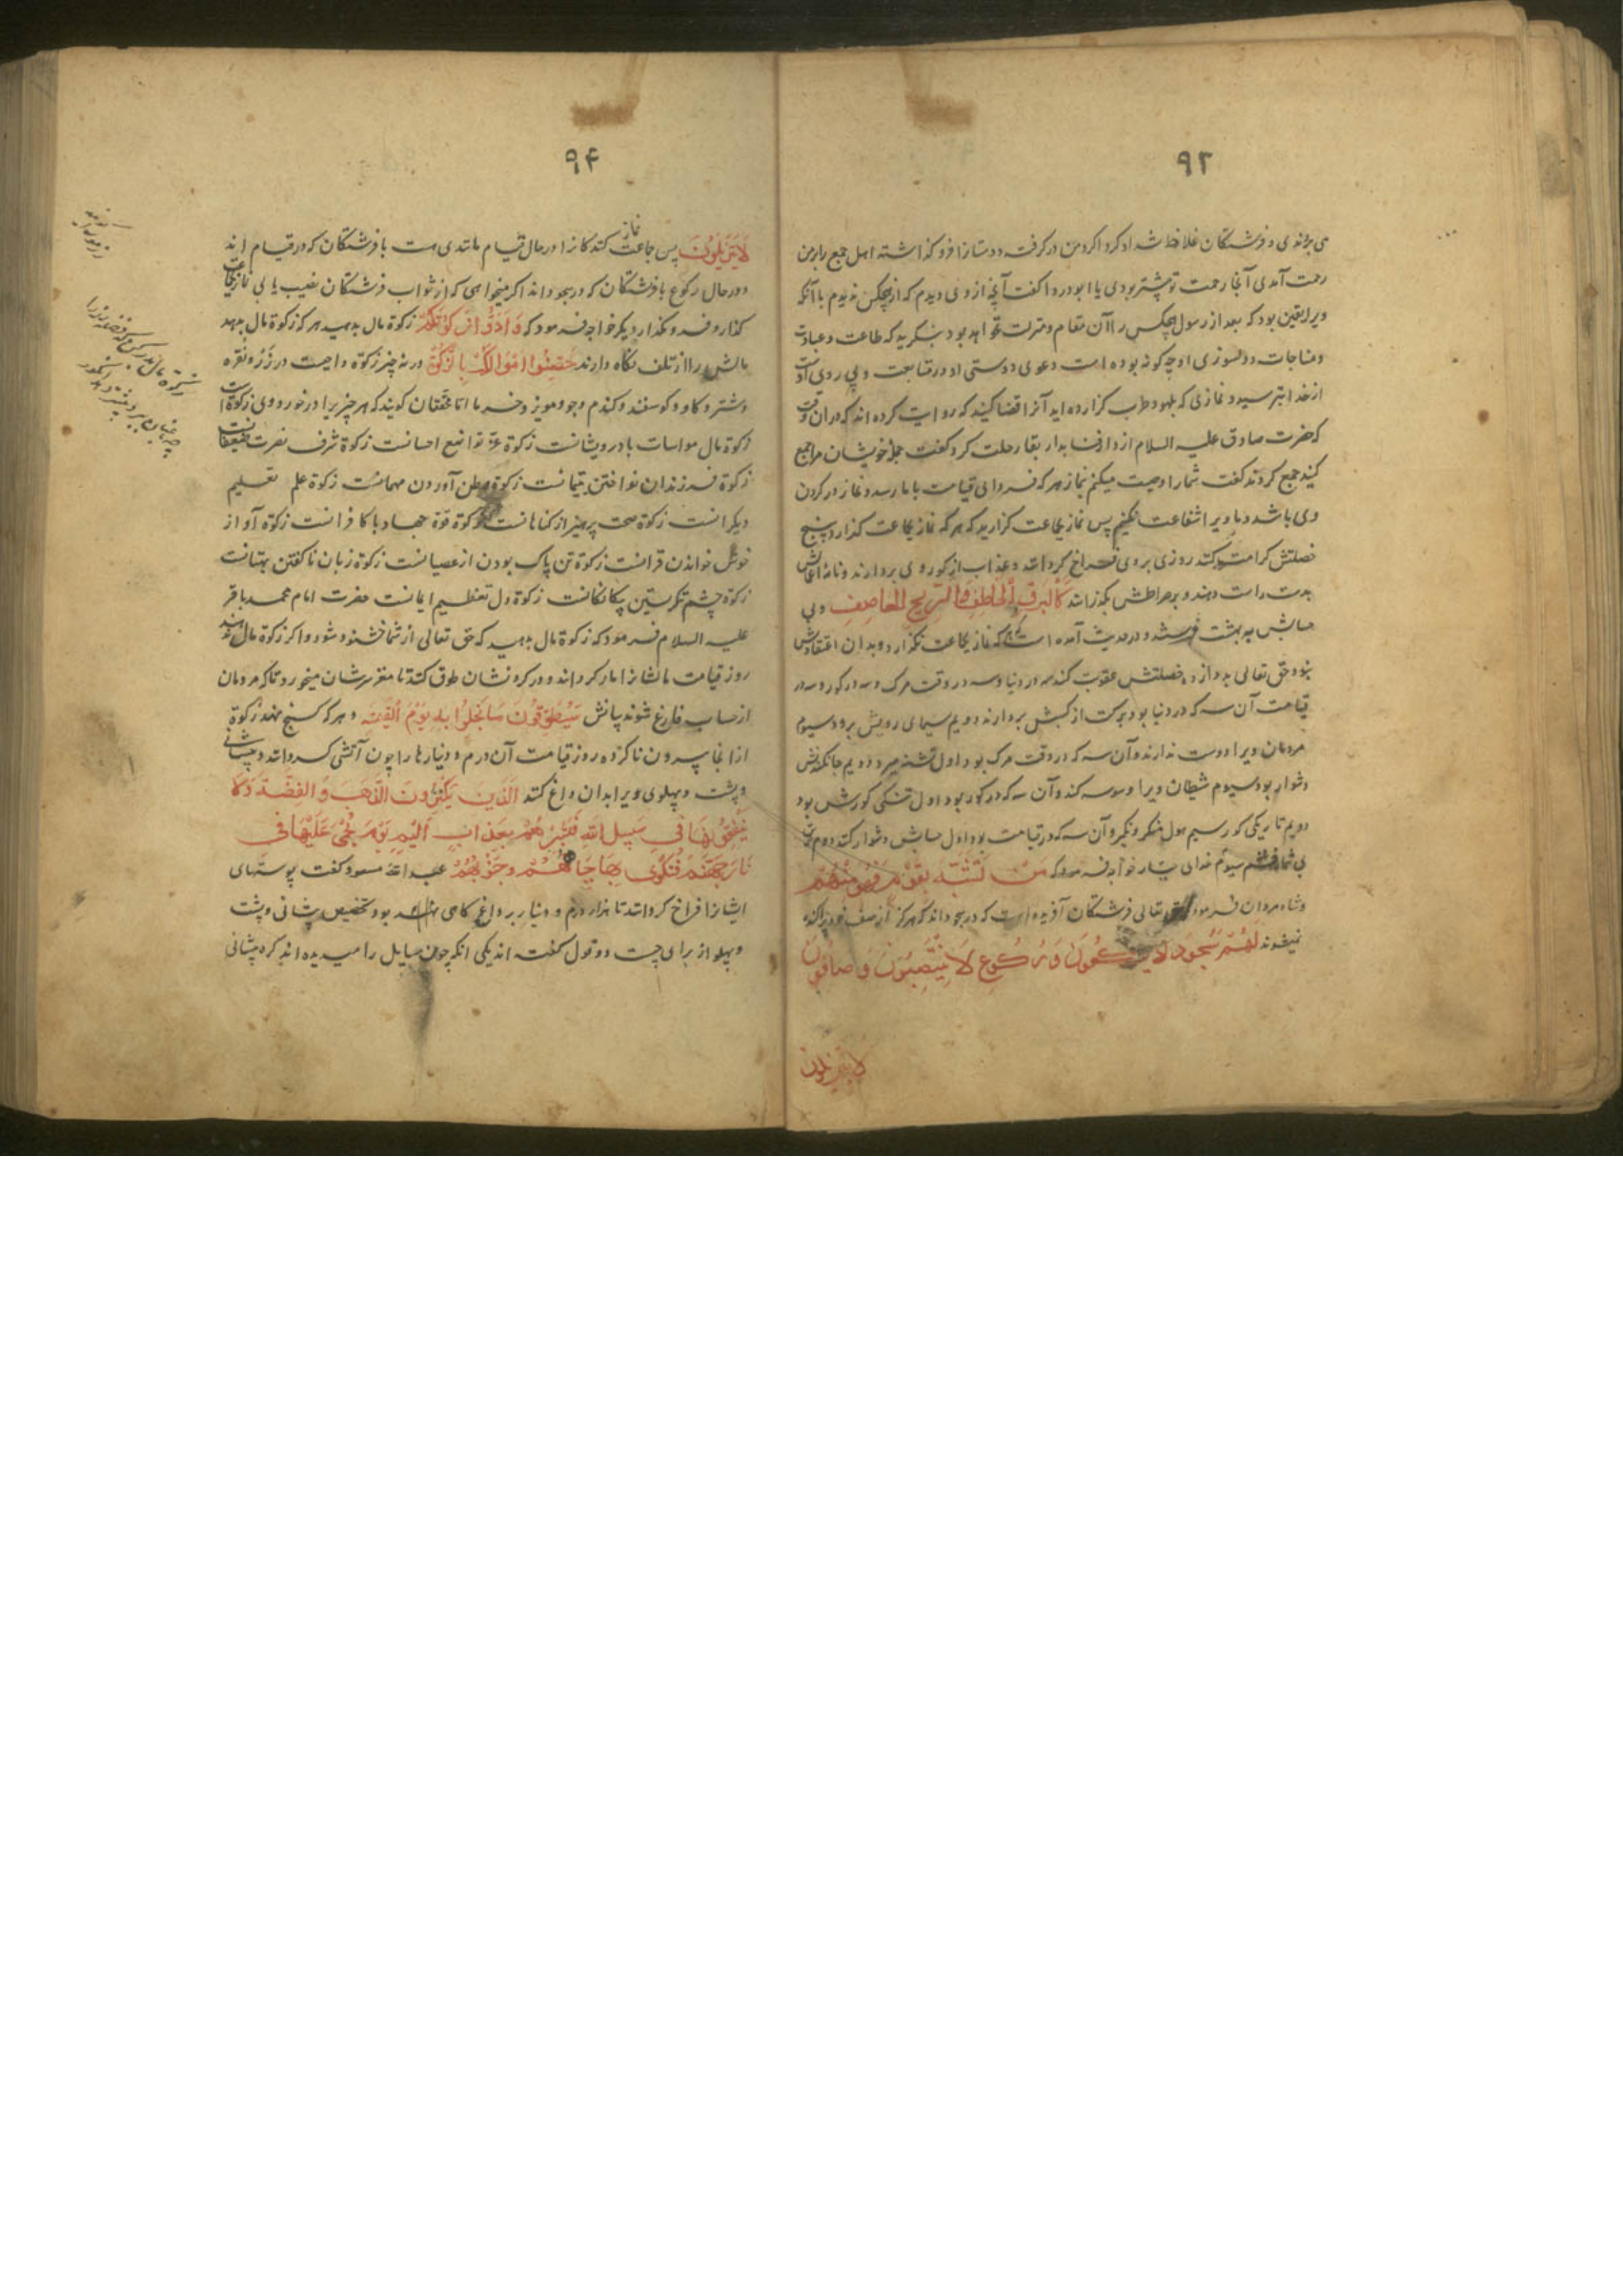 ۹۲
می بژندی و فرشتکان غلاظ شداد کرداکرد من درکرفت و دستارا فرو کذاشته اهل جمع رابرمن
رحمت آمدی آنجا رحمت تو پیشتر بودی یا ابودردا کفت آنچه از وی دیدم که از هیچکس ندیدم با آنکه
ویرا یقین بود که بعد از رسول هیچکس را آن مقام و منزلت نخواهد بود بنکرید که طاعت و عبادت
و مناجات و دلسوزی او چه کونه بوده است دعوی دوستی او در متابعت و پی روی اوست
از خدا بترسید و نمازی که بلهو و طرب کزارده اید آنرا قضا کنید که روایت کرده اند که در آن وقت
که حضرت صادق علیه السلام از دار فنا بدار بقا رحلت کرد کفت جمله خویشان مرا جمع
کنید جمع کردند کفت شما را وصیت میکنم بنماز هر که فردای قیامت با ما رسد و نماز در کردن
وی باشد و ما ویرا شفاعت نکنیم پس نماز بجماعت کزارید که هر که نماز بجماعت کذارد پنج
خصلتش کرامت کند روزی بر وی فراخ کرداند و عذاب از کور وی بردارند و نامه اعمالش
بدست راست دهند و بر صراطش بکذرانند کالبرق الخاطف و الریح العاصف و بی
حسابش به بهشت فرستد و در حدیث آمده است که هر که نماز بجماعت نکذارد و بدان اعتقادش
نبود حق تعالی به دوازده خصلتش عقوبت کند سه در دنیا و سه در وقت مرک و سه در کور و سه در
قیامت آن سه که در دنیا بود برکت از کسبش بردارند دویم سیمای رویش برود سیوم
مردمان ویرا دوست ندارند و آن سه که در وقت مرک بود اول تشنه میرد دویم جانکندنش
دشوار بود سیوم شیطان ویرا وسوسه کند و آن سه که در کور بود اول تنکی کورش بود
دویم تاریکی کور سیم هول منکر و نکیر و آن سه که در قیامت بود اول حسابش دشوار کند دوم
سیوم خدای خواجه فرمود که من تشبه بقوم فهو منهم
و شاه مردان فرمود حق تعالی فرشتکان آفریده است که در سجود اند که هرکز از صف خود پراکنده
نمیشوند لهم سجود لا یرکعون و رکوع لا ینتصبون و صافون
لا یتزیلون
۹۴
لا یتزیلون پس جماعت نماز کنندکانرا در حال قیام مانندی هست با فرشتکان که در قیام اند
و در حال رکوع با فرشتکان که در سجود اند اکر میخواهی که از ثواب فرشتکان نصیب یابی نماز بجماعت
کذار و فرو مکذار دیکر خواجه فرمود که و ادوا زکوتکم زکوة مال بدهید هر که زکوة مال بدهد
مالش را از تلف نکاه دارند حصنوا اموالکم بالزکوة در نه چیز زکوة واجبست در زر و نقره
و شتر و کاو و کوسفند و کندم و جو و مویز و خرما اما محققان کویند که هر چیز یرا در خور و وی زکوة است
زکوة مال مواسات با درویشانست زکوة عز تواضع احسانست زکوة شرف نصرت ضعیفانست
زکوة فرزندان نواختن یتیمانست زکوة وطن آوردن مهمانست زکوة علم تعلیم
دیکرانست زکوة صحت پرهیز از کناهانست زکوة قوة جهاد با کافرانست زکوة آواز
خوش خواندن قرانست زکوة تن پاک بودن از عصیانست زکوة زبان ناکفتن بهتانست
زکوة چشم نکرستین پیکانکانست زکوة دل تعظیم ایمانست حضرت امام محمد باقر
علیه السلام فرمود که زکوة مال بدهید که حق تعالی از شما خشنود شود و اکر زکوة مال ندهند
روز قیامت مالشانرا مار کرداند و در کردنشان طوق کنند تا مغز سرشان میخورد تا که مردمان
از حساب فارغ شوند بیانش سیطوقون ما بخلوا به یوم القیمة و هر که کنج نهد زکوة
از انجا بیرون ناکرده روز قیامت آن درم و دینارها را چون آتشی کرداند و پیشانی
و پشت و پهلوی ویرا بدان داغ کنند الذین یکنزون الذهب و الفضة و لا
ینفقونها فی سبیل الله فبشرهم بعذاب الیم یوم یحمی علیها فی
نار جهنم فتکوی بها جباههم و جنوبهم عبد الله مسعود کفت پوستهای
ایشانرا فراخ کردانند تا هزار درم و دینار بر داغ کاهی نهاده بود و تخصیص پیشانی و پشت
و پهلو از برای چیست دو قول کفته اند یکی انکه چون سایل را میدیده اند کره پیشانی